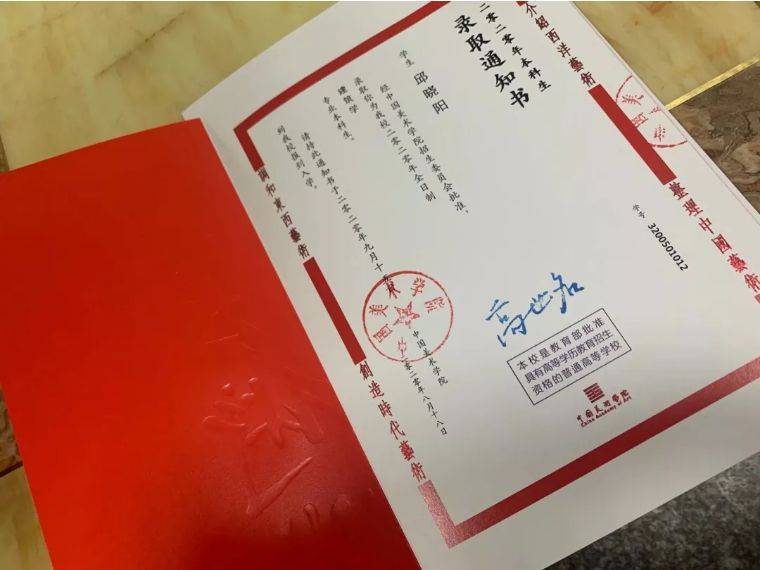 介紹西洋藝術
整理中國藝術
二〇二〇年本科生
录取通知书
学生 邱晓阳
经中国美术学院招生委员会批准,
录取你为我校二〇二〇年全日制
专业本科生。
请持此通知书于二〇二〇年九月十
到我校报到入学。
中国美术学院
二〇二〇年八月十八日
学号 320501012
高世名
本校是教育部批准
具有高等学历教育招生
资格的普通高等学校
中國美術學院
China Academy of Art
調和東西藝術
創造時代藝術